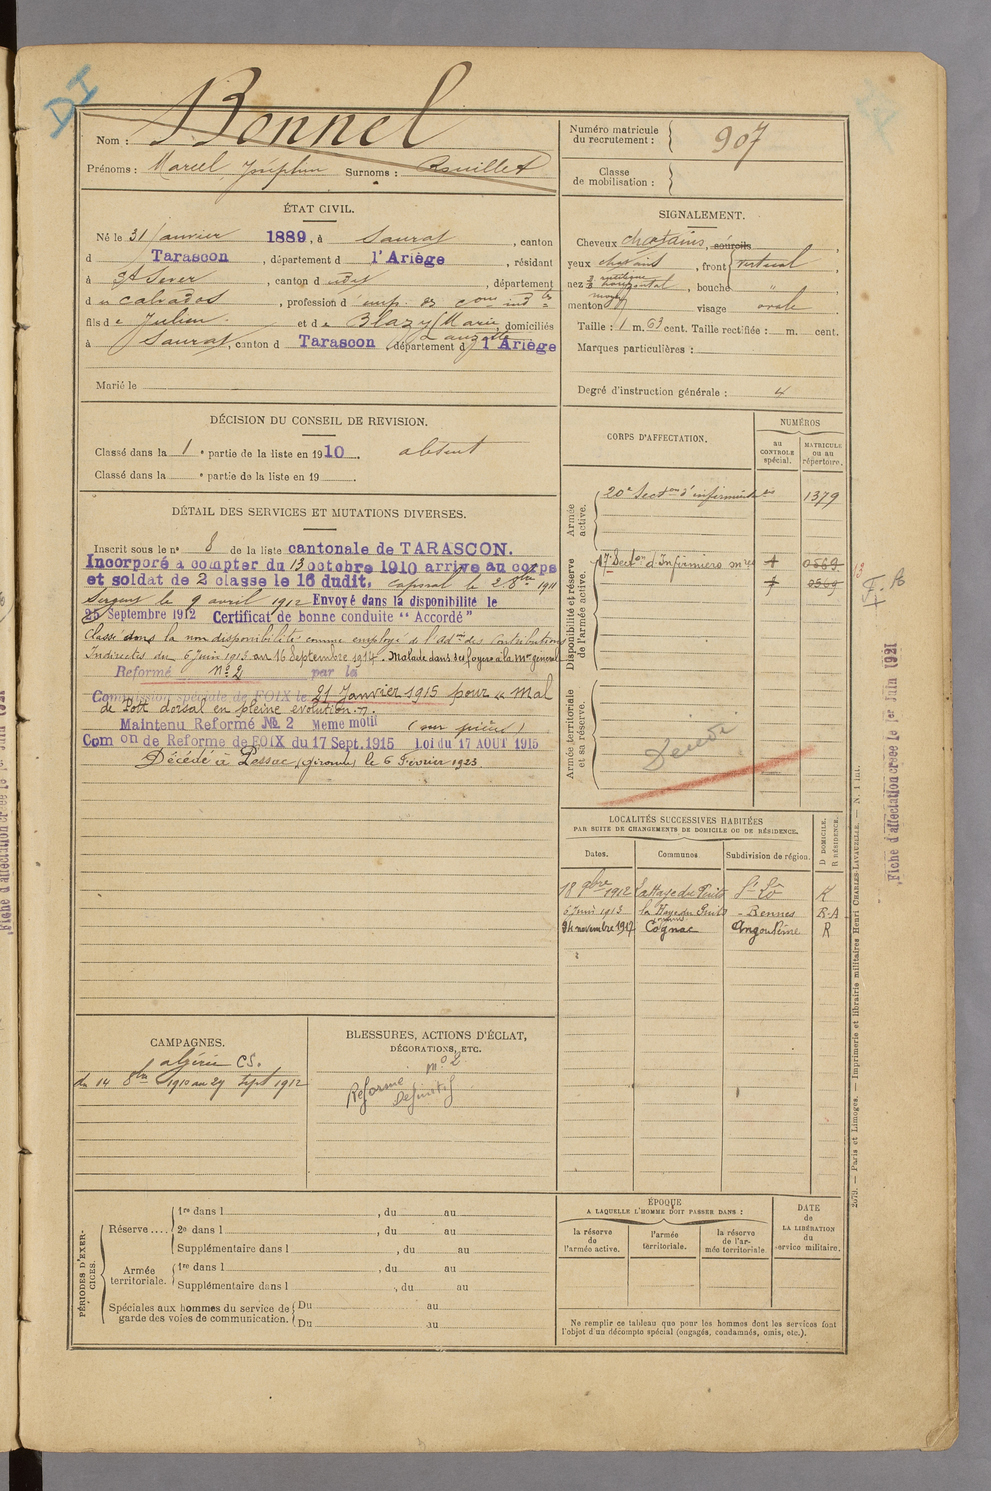 DI
Nom : Bonnel
Prénoms : Marcel Joséphin Surnoms : Rouillet
Numéro matricule du recrutement : 907
Classe de mobilisation :
ÉTAT CIVIL.
Né le 31 Janvier 1889, à Saurat, canton
d Tarascon, département d l'Ariège, résidant
à St Sever, canton d udit, département
d u Calvados, profession d emp. de
fils d e Julien et d e Blazy (Marie, domiciliés
à Saurat, canton d Tarascon, département d l'Ariège
Marié le
SIGNALEMENT.
Cheveux chatains, sourcils
yeux chatains, front vertical
nez horizontal, bouche "
menton visage ovale
Taille : 1 m. 63 cent. Taille rectifiée : m. cent.
Marques particulières :
Degré d'instruction générale : 4
DÉCISION DU CONSEIL DE REVISION.
Classé dans la 1 e partie de la liste en 1910. absent
Classé dans la e partie de la liste en 19 .
DÉTAIL DES SERVICES ET MUTATIONS DIVERSES.
Inscrit sous le n° 8 de la liste cantonale de TARASCON.
Incorporé à compter du 13 octobre 1910 arrivé au corps
et soldat de 2 classe le 16 dudit. caporal le 2 8bre 1911
Sergent le 9 avril 1912 Envoyé dans la disponibilité le
25 Septembre 1912 Certificat de bonne conduite "Accordé"
Classé dans la non disponibilité comme employé de l'admon des Contributions
Indirectes du 6 Juin 1913 au 16 Septembre 1914. Malade dans ses foyers à la mon générale
Reformé N° 2 par la
Commission spéciale de FOIX le 21 Janvier 1915 pour "Mal
de Pott dorsal en pleine évolution".
Maintenu Reformé № 2 Meme motif (sur pièces)
Com on de Reforme de FOIX du 17 Sept. 1915 Loi du 17 AOUT 1915
Décédé à Pessac (Gironde) le 6 Février 1923
CORPS D'AFFECTATION.
NUMÉROS
au CONTROLE spécial.
MATRICULE ou au répertoire.
Armée active.
20e Secton d'infirmiers 1379
Disponibilité et réserve de l'armée active.
17e Secton d'Infirmiers mres 0569
0569
Armée territoriale et sa réserve.
Décédé
Fiche d'affectation créée le 1er Juin 1921
LOCALITÉS SUCCESSIVES HABITÉES
PAR SUITE DE CHANGEMENTS DE DOMICILE OU DE RÉSIDENCE.
Dates. Communes Subdivision de région. D DOMICILE. R RÉSIDENCE.
18 9bre 1912 La Haye du Puits St Lô R
6 Juin 1913 la Haye du Puits - Rennes R-A
24 novembre 1917 Cognac Angoulême R
CAMPAGNES.
Algérie CS.
du 14 8bre 1910 au 27 Sept 1912
BLESSURES, ACTIONS D'ÉCLAT,
DÉCORATIONS, ETC.
Réformé n° 2
Définitif
PÉRIODES D'EXERCICES.
Réserve.... 1re dans l , du au
2e dans l , du au
Supplémentaire dans l , du au
Armée territoriale. 1re dans l , du au
Supplémentaire dans l , du au
Spéciales aux hommes du service de garde des voies de communication. Du au
Du au
ÉPOQUE
A LAQUELLE L'HOMME DOIT PASSER DANS :
la réserve de l'armée active.
l'armée territoriale.
la réserve de l'armée territoriale
DATE de LA LIBÉRATION du service militaire.
Ne remplir ce tableau que pour les hommes dont les services font
l'objet d'un décompte spécial (engagés, condamnés, omis, etc.).
2579. — Paris et Limoges. — Imprimerie et librairie militaires Henri CHARLES-LAVAUZELLE. — N. 1 int.